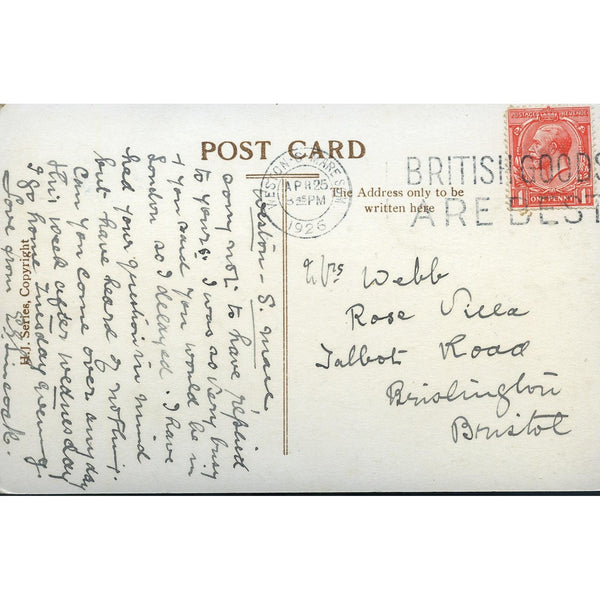 POST CARD
WESTON-S-MARE
APR 25
5 45 PM
1926
BRITISH GOODS
ARE BEST
POSTAGE REVENUE
1 ONE PENNY 1
The Address only to be
written here
H.J. Series, Copyright
Weston-S. Mare
sorry not to have replied
to yours. I was so very busy
& you said you would be in
London so I delayed. I have
had your question in mind
but have heard of nothing.
Can you come over any day
this week after Wednesday
I go home Tuesday evening.
Love from
Mrs Webb
Rose Villa
Talbot Road
Brislington
Bristol